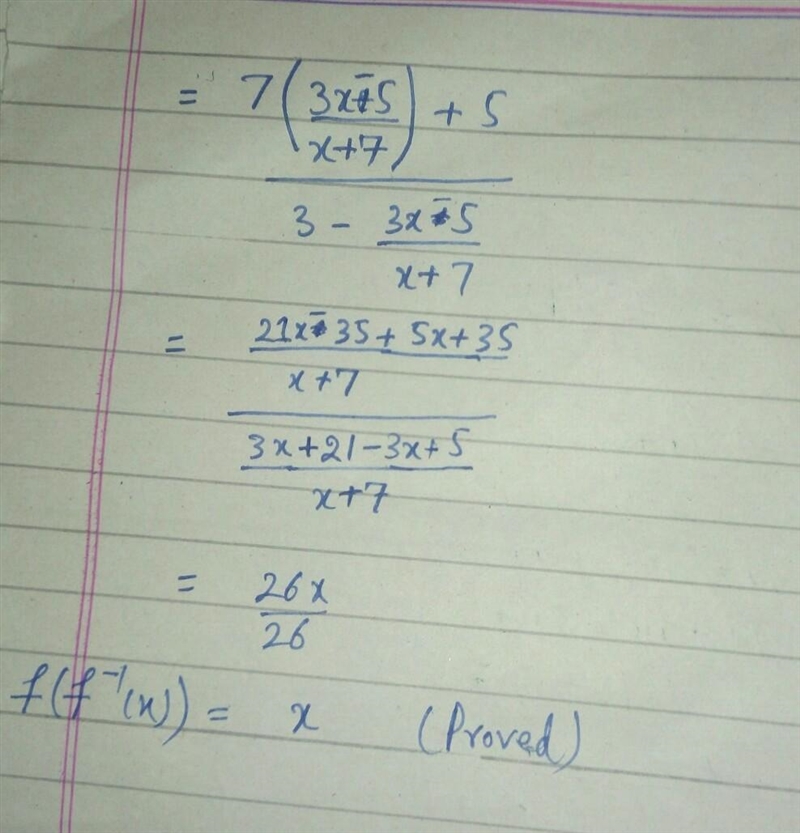 = 7(3x-5
x+7) + 5
3 - 3x-5
x+7
= 21x-35 + 5x+35
x+7
3x+21-3x+5
x+7
= 26x
26
f(f⁻¹(x)) = x (Proved)